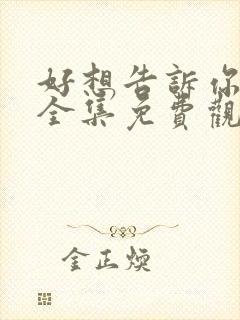 好想告訴你
全集免費觀
金正煥